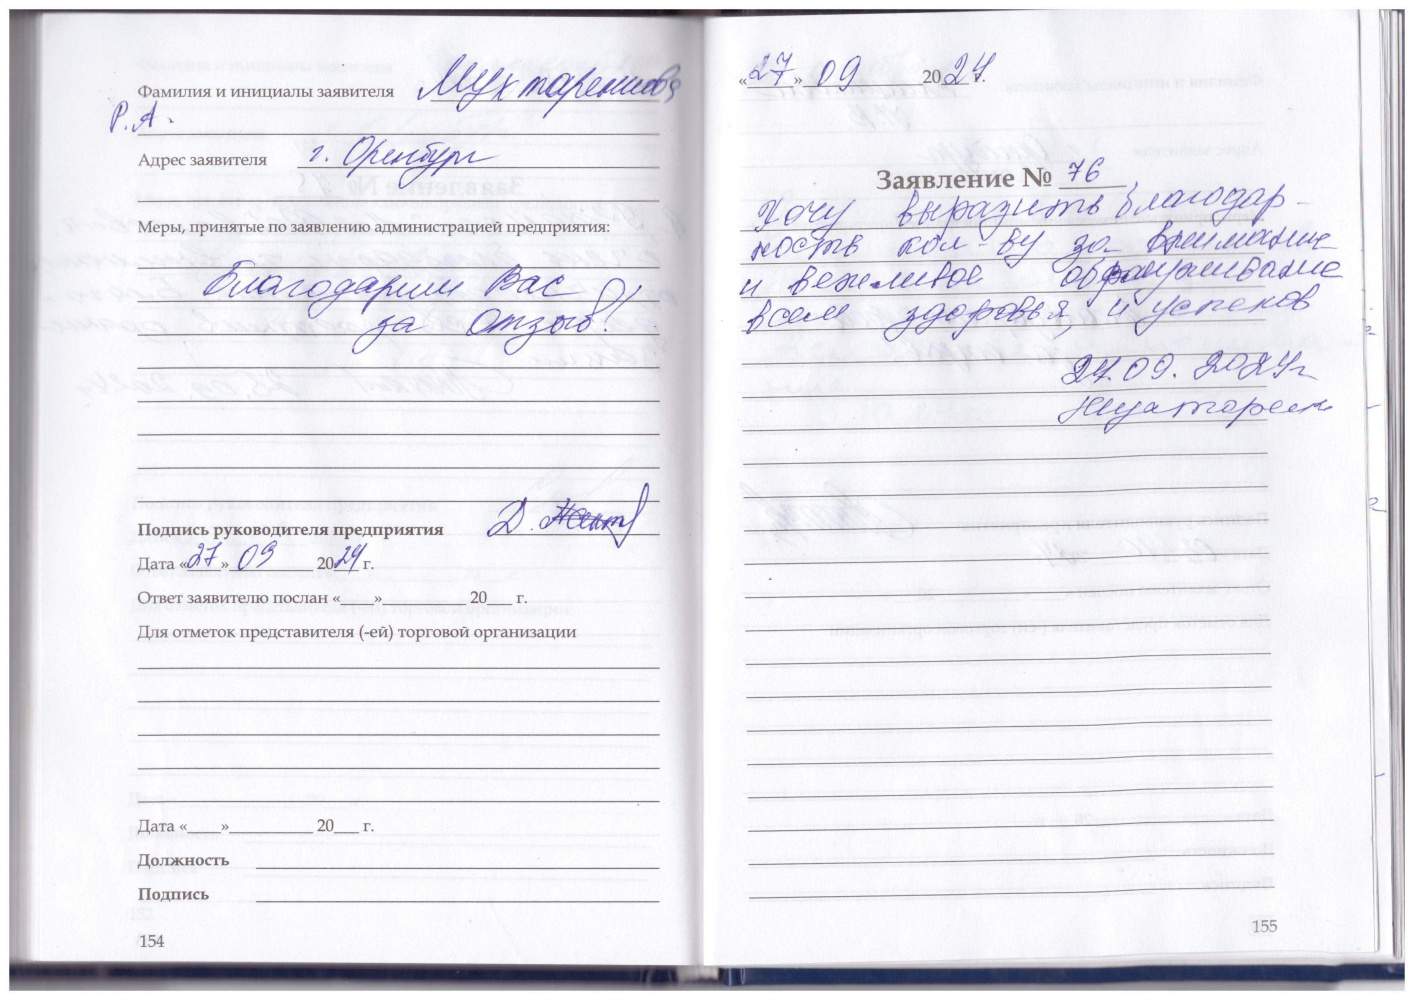 Фамилия и инициалы заявителя
Р.А.
Адрес заявителя г. Оренбург
Меры, принятые по заявлению администрацией предприятия:
Благодарим Вас
за отзыв!
Подпись руководителя предприятия
Дата «27» 09 2024 г.
Ответ заявителю послан «____»__________ 20___ г.
Для отметок представителя (-ей) торговой организации
Дата «____»__________ 20___ г.
Должность
Подпись
154
«27» 09 2024 г.
Заявление № 76
Хочу выразить благодар-
ность кол-ву за внимание
и вежливое обслуживание
всем здоровья, и успехов
27.09.2024г
155